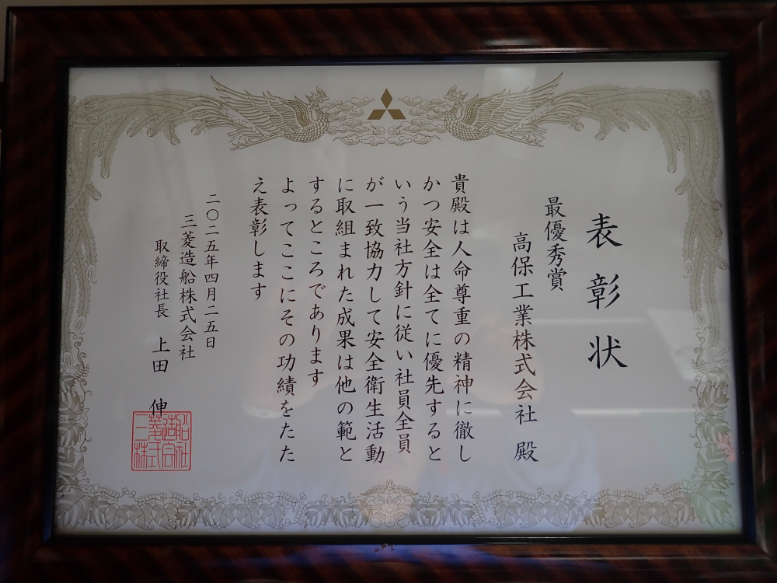 表彰状
最優秀賞
高保工業株式会社 殿
貴殿は人命尊重の精神に徹し
かつ安全は全てに優先すると
いう当社方針に従い社員全員
が一致協力して安全衛生活動
に取組まれた成果は他の範と
するところであります
よってここにその功績をたた
え表彰します
二〇二五年四月二五日
三菱造船株式会社
取締役社長 上田 伸
三菱造船
株式会社